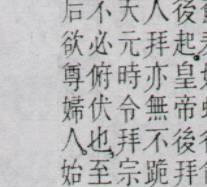 後起。皇帝後拜
人拜亦無不跪
天元時令拜宗
不必俯伏也，至
后欲尊婦人，始